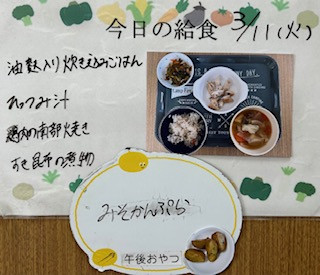 今日の給食 3/11(火)
油麩入り炊き込みごはん
ひっつみ汁
鶏肉の南部焼き
すき昆布の煮物
みそかんぷら
午後おやつ